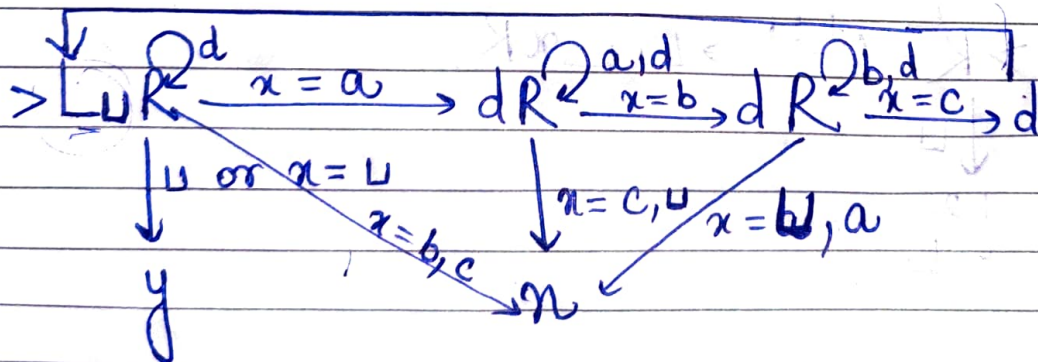 > L⊔ R d x = a d R a, d x = b d R b, d x = c d
⊔ or x = ⊔ x = b, c x = c, ⊔ x = ⊔, a
y n